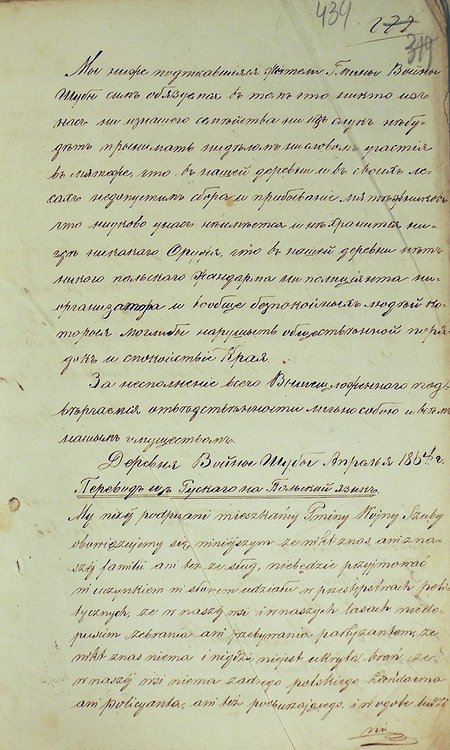 434
277
319
Мы ниже подписавшіяся жители Гмины Войны
Шубы симъ обязуемся въ томъ что никто изъ
насъ ни изнашего семѣйства ни изъ слугъ небу-
дѣтъ прынимать ни дѣломъ ни словомъ участія
въ мятеже, что въ нашей деревни и въ своихъ ле-
сахъ недопустимъ сбора и прибованіе мятѣжниковъ
что никуово унасъ неимѣется и нехранится ни-
гдѣ никакаго Оружія, что въ нашей деревни нѣтъ
никого польскаго жандарма ни полиціянта ни
организатора и вообще безпокойныхъ людѣй ко-
торыя моглибы нарушыть общественной поря-
докъ и спокойствіе Края.
За несполненіе всего Вышеизложенного под-
вѣргаемся отвѣтственности лично собою и всемъ
нашымъ имуществамъ.
Деревня Войны Шубы Апреля 1864 г.
Переводъ изъ Рускаго на Польскій языкъ.
My niżej podpisani mieszkańcy Gminy Wojny Szuby
obowiązujemy się niniejszym ze nikt znas, ani zna-
szej familii ani też ze sług, niebędzie przyjmować
ni uczynkiem ni słowem udziału w przestępstwach poli-
tycznych, ze w naszej wsi i w naszych lasach niedo-
puścim zebrania ani przebywania partyzantów, ze
nikt znas niema i nigdzie niejest ukryta broń, ze
w naszej wsi niema żadnego polskiego żandarma
ani policyanta, ani też poruszającego i w ogóle ludzi